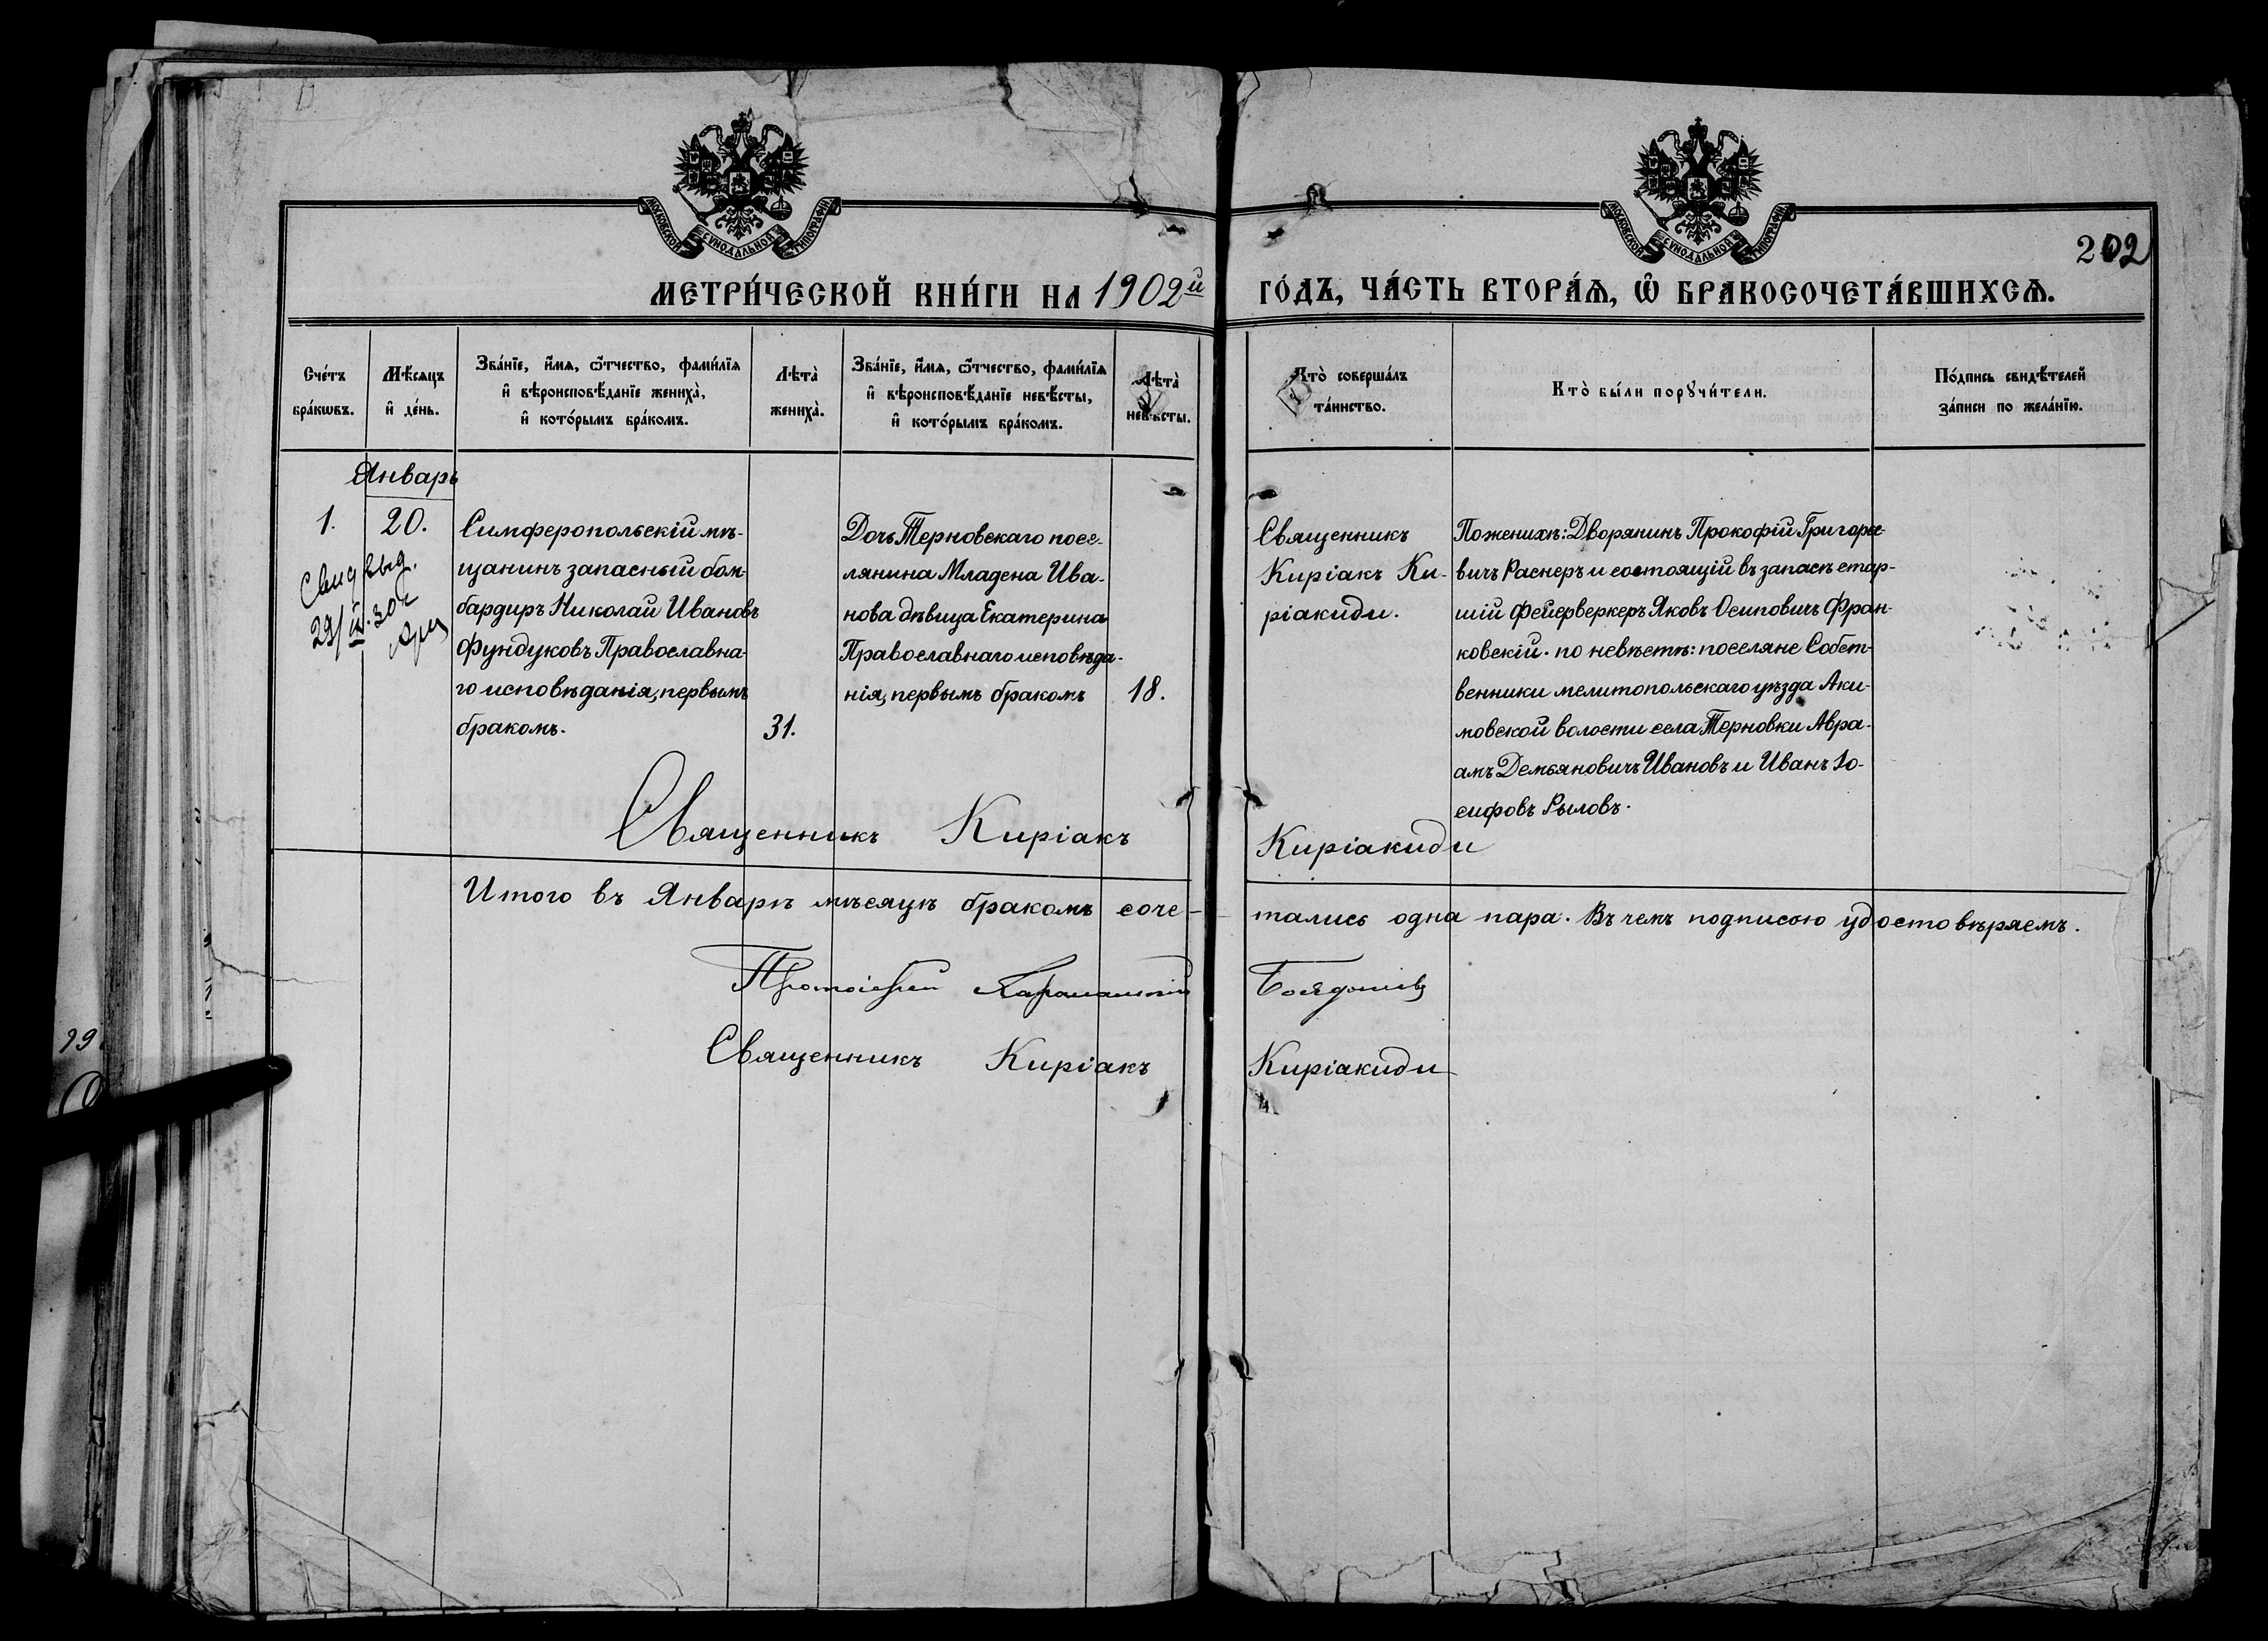 МОСКОВСКОЙ СѴНОДАЛЬНОЙ ТИПОГРАФІИ
МОСКОВСКОЙ СѴНОДАЛЬНОЙ ТИПОГРАФІИ
202
МЕТРИ́ЧЕСКОЙ КНИ́ГИ НА 1902й ГО́ДЪ, ЧА́СТЬ ВТОРА́Ѧ, Ѽ БРАКОСОЧЕТА́ВШИХСѦ.
Сче́тъ
бра́кѡвъ.
Мѣ́сяцъ
и҆ де́нь.
Зва́нїе, и҆́мѧ, ѻ҆́тчество, фами́лїѧ
и҆ вѣроисповѣ́данїе жениха̀,
и҆ кото́рымъ бра́комъ.
Лѣта̀
жениха̀.
Зва́нїе, и҆́мѧ, ѻ҆́тчество, фами́лїѧ
и҆ вѣроисповѣ́данїе невѣ́сты,
и҆ кото́рымъ бра́комъ.
Лѣта̀
невѣ́сты.
Кто̀ соверша́лъ
та́инство.
Кто̀ бы́ли порꙋчи́тели.
По́дпись свидѣ́телей
за́писи по жела́нїю.
Январь
1.
20.
Свид выд.
Симферопольскій мѣ-
щанинъ запасный бом-
бардиръ Николай Ивановъ
Фундуковъ Православна-
го исповѣданія, первымъ
бракомъ.
31.
Дочь Терновскаго посе-
лянина Младена Ива-
нова дѣвица Екатерина
Православнаго исповѣда-
нія, первымъ бракомъ
18.
Священникъ
Киріакъ Ки-
ріакиди.
По женихѣ: Дворянинъ Прокофій Григорье-
вичъ Раснеръ и состоящій въ запасѣ стар-
шій фейерверкеръ Яковъ Осиповичъ Фран-
ковскій. по невѣстѣ: поселяне Собст-
венники мелитопольскаго уѣзда Аки-
мовской волости села Терновки Авра-
амъ Демьяновичъ Ивановъ и Иванъ Іо-
сифовъ Рыловъ.
Священникъ Киріакъ Киріакиди
Итого въ Январѣ мѣсяцѣ бракомъ соче- тались одна пара. Въ чемъ подписью удостовѣряемъ.
Протоіерей
Священникъ Киріакъ Киріакиди